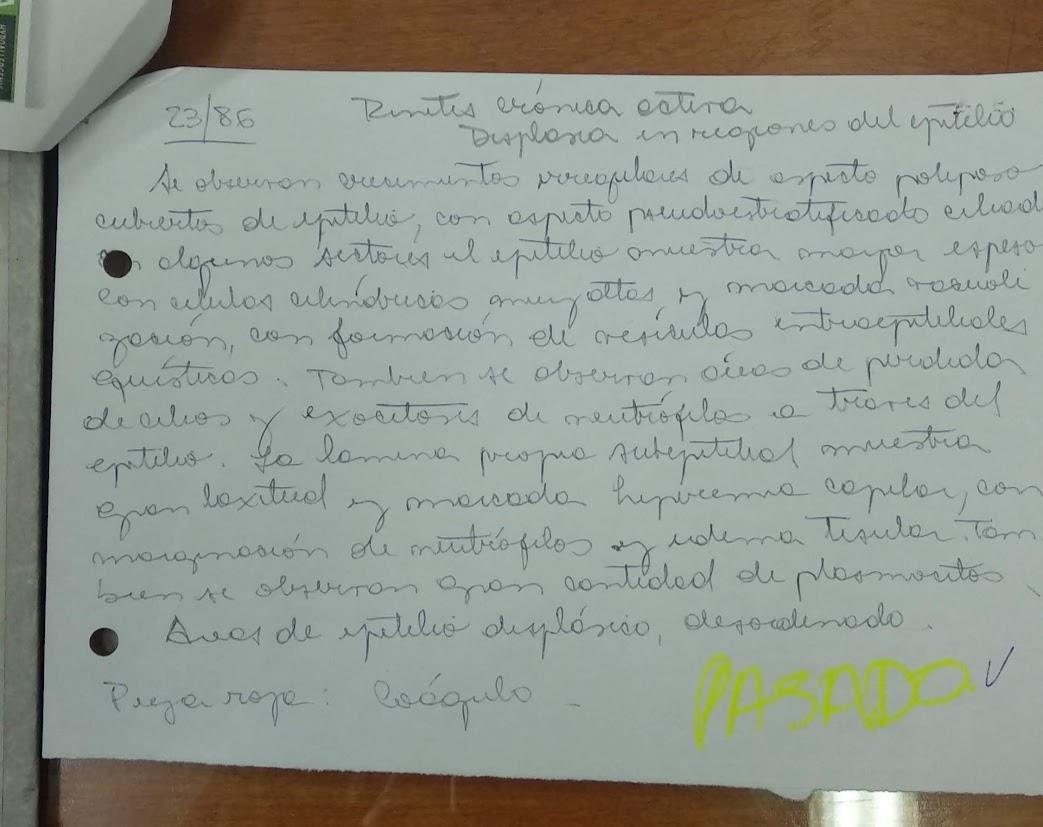 23/86
Rinitis crónica activa
Displasia en regiones del epitelio
Se observan crecimientos irregulares de aspecto poliposo
cubiertos de epitelio, con aspecto pseudoestratificado ciliad
en algunos sectores el epitelio muestra mayor espeso
con células cilíndricas muy altas y marcada vacuoli
zación, con formación de vesículas intraepiteliales
quísticas. Tambien se observan áreas de perdida
de cilios y exocitosis de neutrófilos a traves del
epitelio. La lamina propia subepitelial muestra
gran laxitud y marcada hiperemia capilar, con
marginación de neutrófilos y edema tisular. Tam
bien se observan gran cantidad de plasmocitos
Areas de epitelio displásico, desordenado.
Pieza roja: Coágulo -
PASADO